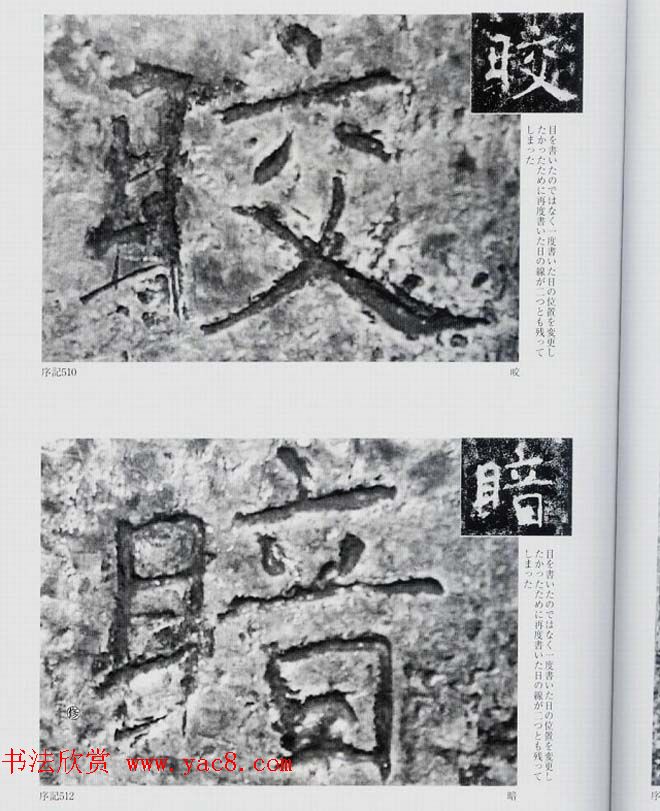 皎
目を書いたのではなく一度書いた日の位置を変更し
たかったために再度書いた日の線が二つとも残って
しまった
序記510
皎
暗
目を書いたのではなく一度書いた日の位置を変更し
たかったために再度書いた日の線が二つとも残って
しまった
修
书法欣赏 www.yac8.com
序記512
暗
序